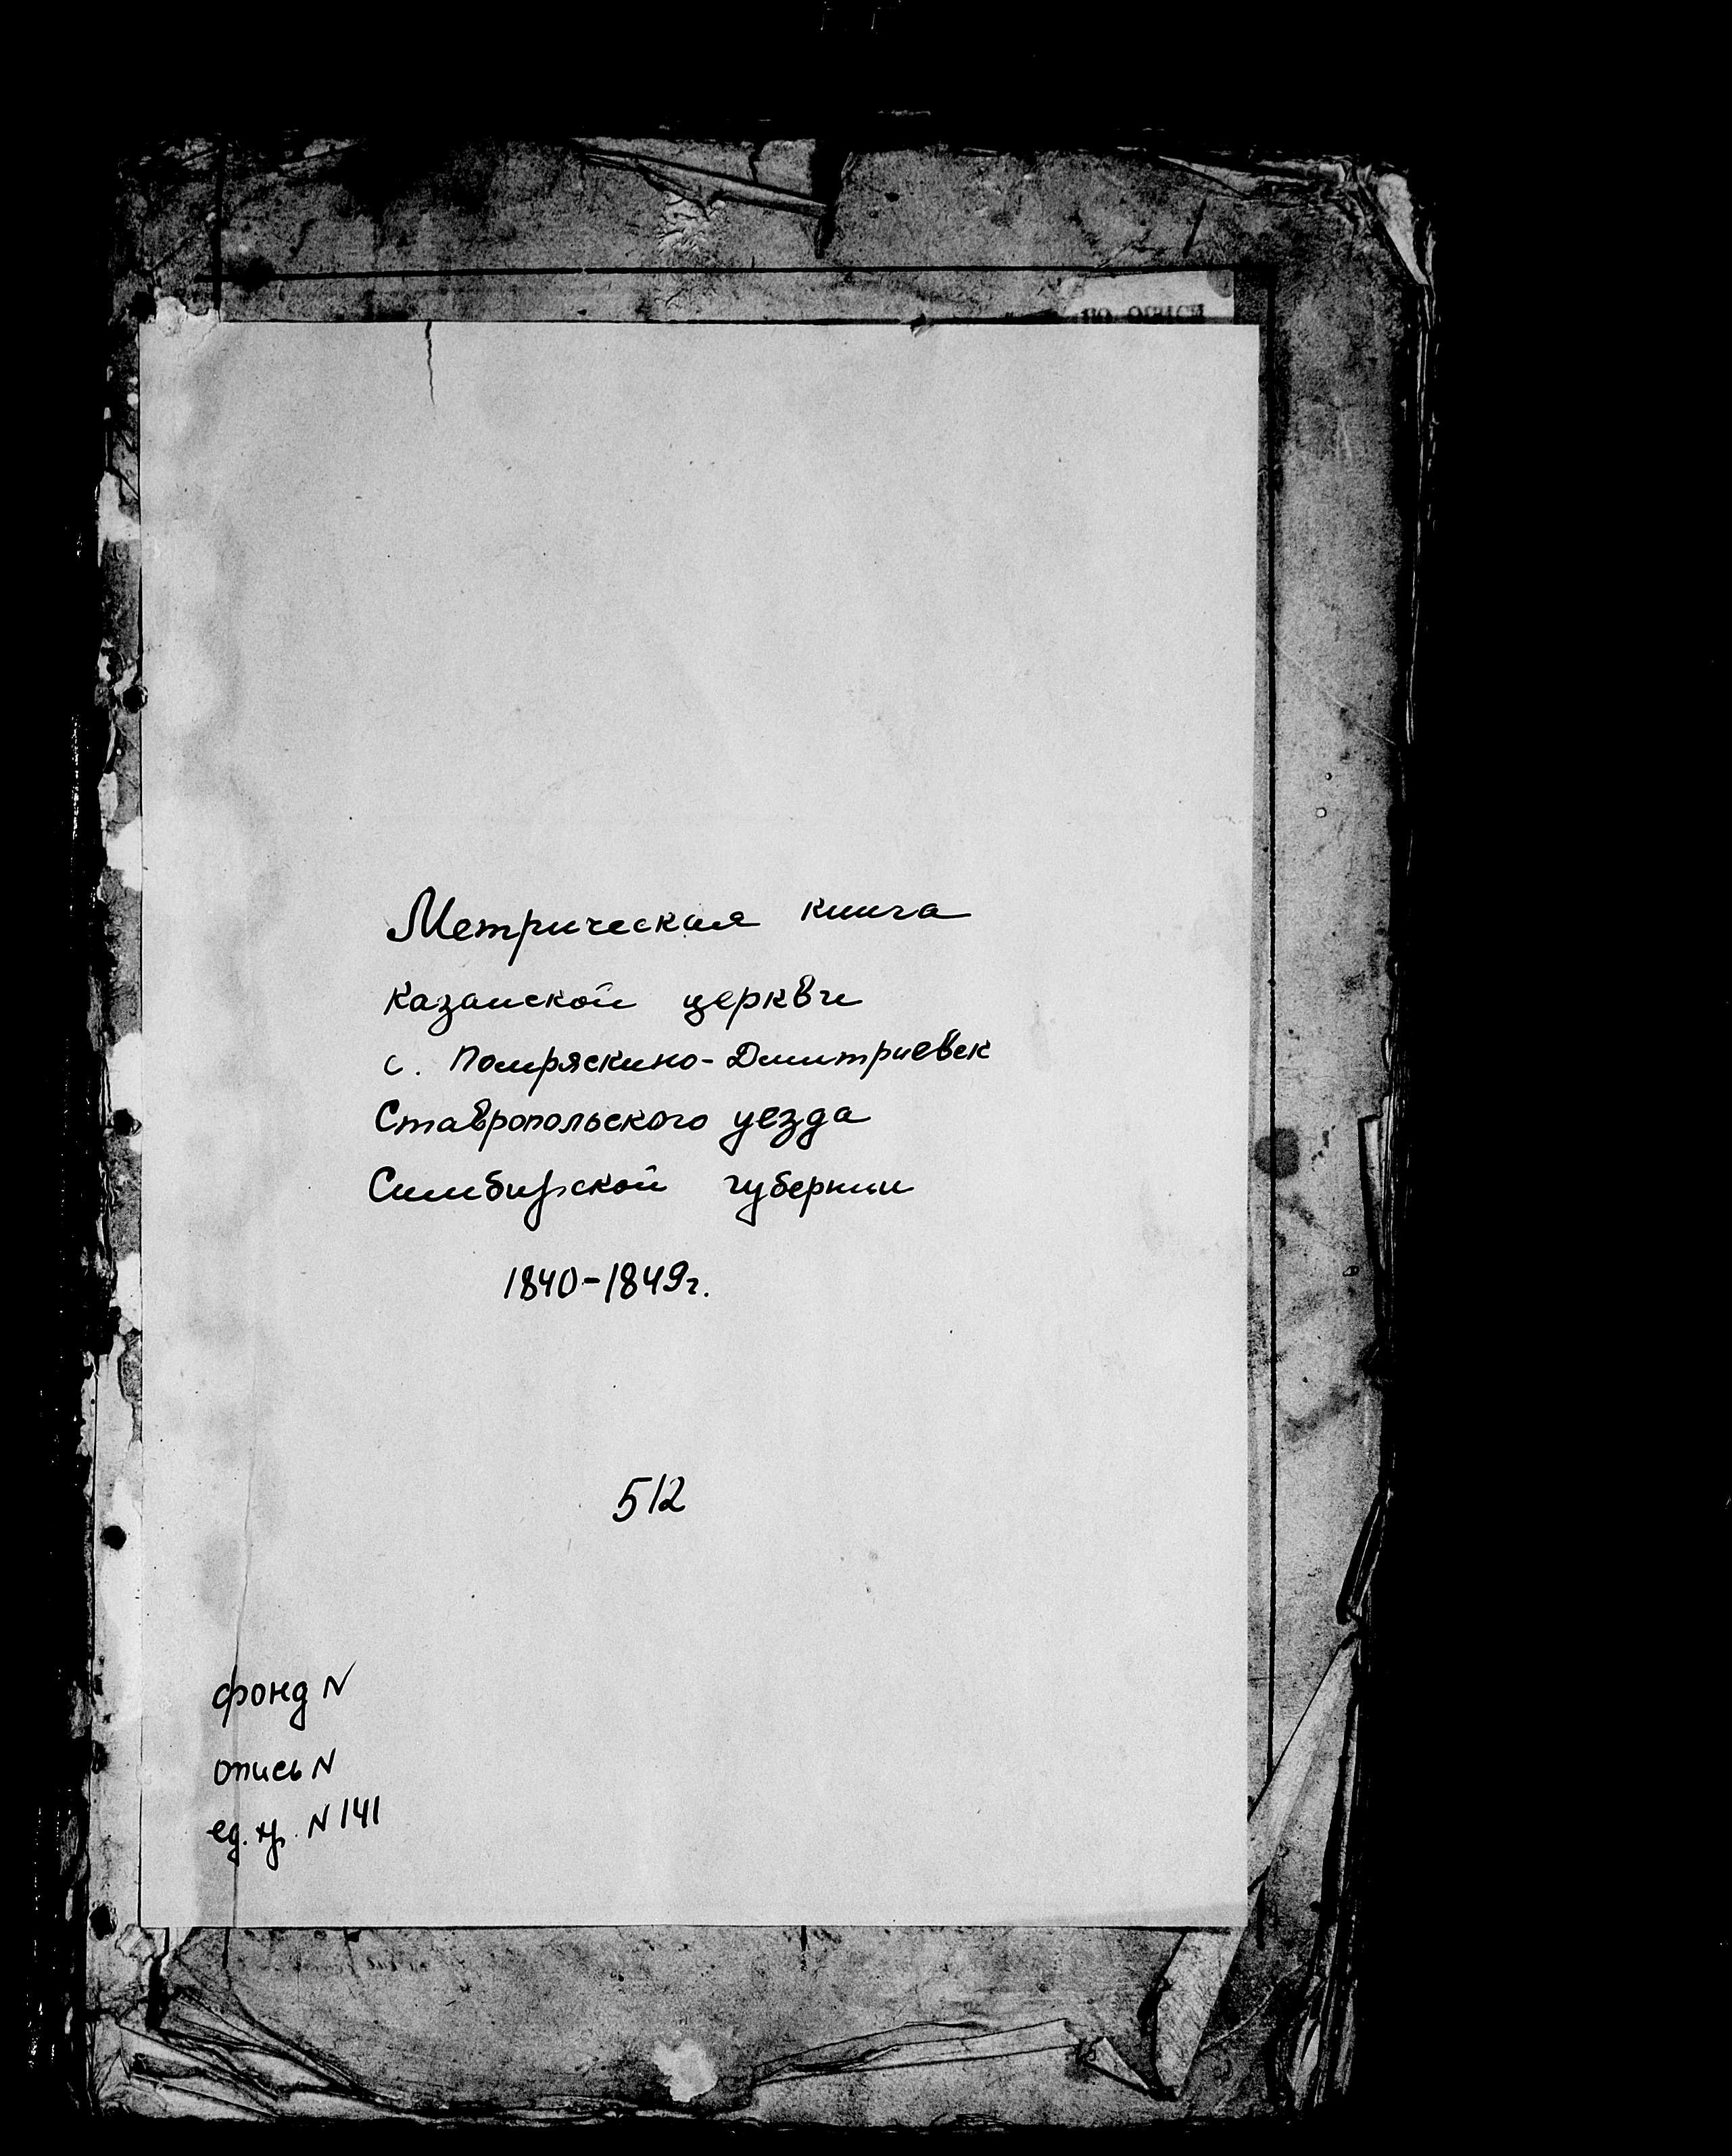 по описи
Метрическая книга
казанской церкви
с. Помряскино-Дмитриевск
Ставропольского уезда
Симбирской губернии
1840-1849г.
512
фонд N
опись N
ед. хр. N 141